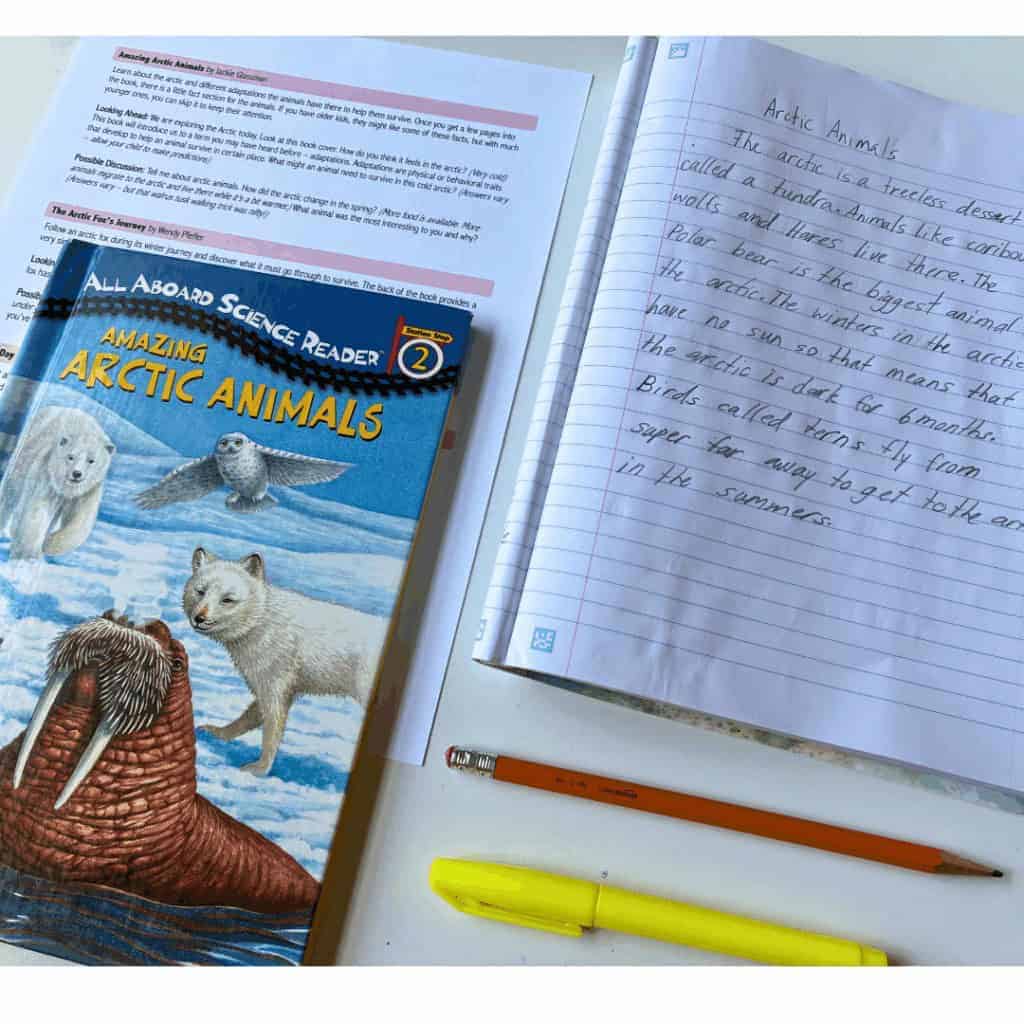 Amazing Arctic Animals by Jackie Glassman
Learn about the arctic and different adaptations the animals have there to help them survive. Once you get a few pages into
the book, there is a little fact section for the animals. If you have older kids, they might like some of these facts, but with much
younger ones, you can skip it to keep their attention.
Looking Ahead: We are exploring the Arctic today. Look at this book cover. How do you think it feels in the arctic? (Very cold)
This book will introduce us to a term you may have heard before – adaptations. Adaptations are physical or behavioral traits
that develop to help an animal survive in certain place. What might an animal need to survive in this cold arctic? (Answers vary
– allow your child to make predictions)
Possible Discussion: Tell me about arctic animals. How did the arctic change in the spring? (More food is available. More
animals migrate to the arctic and live there while it's a bit warmer.) What animal was the most interesting to you and why?
(Answers vary – but that walrus tusk walking trick was nifty!)
The Arctic Fox's Journey by Wendy Pfeffer
Follow an arctic fox during its winter journey and discover what it must go through to survive. The back of the book provides a
very
Looking
fox has
Possib
under
you've
Day
ALL ABOARD SCIENCE READER™
Station Stop
2
AMAZING
ARCTIC ANIMALS
Arctic Animals
The arctic is a treeless dessert
called a tundra. Animals like caribou
wolls and Hares live there. The
Polar bear is the biggest animal
the arctic. The winters in the arctic
have no sun so that means that
the arctic is dark for 6 months.
Birds called terns fly from
super far away to get to the arc
in the summers.